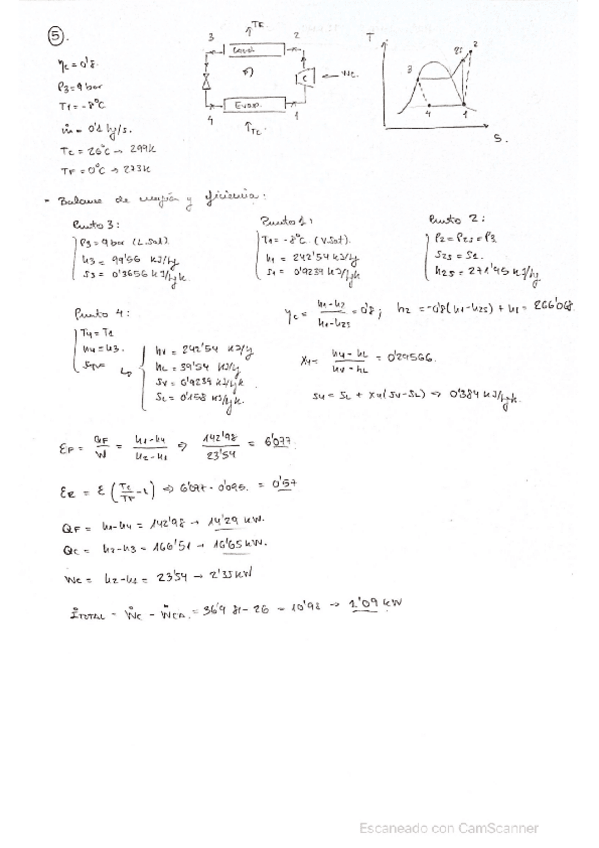 5.
TF
3 2
Cond
ηc = 0'8.
P3 = 9 bar
T1 = -8°C
ṁ = 0'1 kg/s.
Tc = 26°C → 299K
TF = 0°C → 273K
C ← Wc.
4 Evap. 1
↑Tc
T
2s 2
3
4 1
S.
- Balance de energía y eficiencia:
Punto 3:
P3 = 9 bar (L.Sat).
h3 = 99'56 KJ/kg
s3 = 0'3656 KJ/kgK.
Punto 1:
T1 = -8°C. (V.Sat).
h1 = 242'54 KJ/kg
s1 = 0'9239 KJ/kgK
Punto 2:
P2 = P2s = P3
s2s = s1.
h2s = 271'95 KJ/kg
Punto 4:
T4 = T1
h4 = h3.
hv = 242'54 KJ/kg
hL = 39'54 KJ/kg
sv = 0'9239 KJ/kgK
sL = 0'158 KJ/kgK.
ηc = h1-h2 / h1-h2s = 0'8; h2 = -0'8(h1-h2s) + h1 = 266'068.
x4 = h4-hL / hv-hL = 0'29566.
s4 = sL + x4(sv-sL) ⇒ 0'384 KJ/kgK.
EF = QF/W = h1-h4 / h2-h1 ⇒ 142'98 / 23'54 = 6'077.
ER = E (Tc/TF - 1) ⇒ 6'077 · 0'095. = 0'57
QF = h1-h4 = 142'98 → 14'29 KW.
QC = h2-h3 = 166'51 → 16'65 KW.
Wc = h2-h1 = 23'54 → 2'35 KW
İTOTAL = Ẇc - ẆCA.
→ 1'09 KW
Escaneado con CamScanner